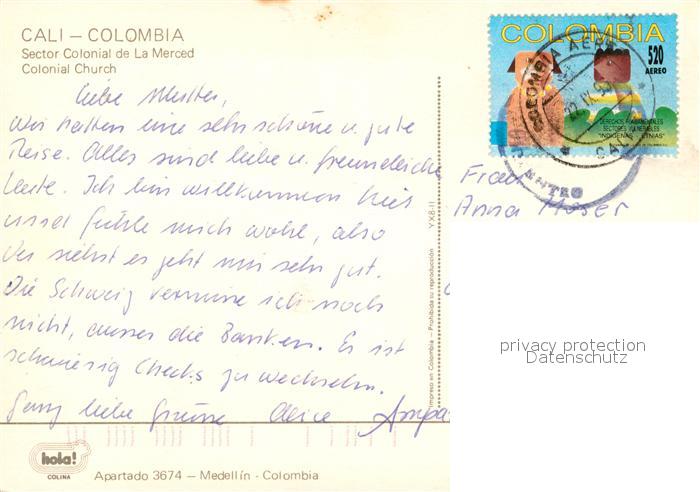 CALI – COLOMBIA
Sector Colonial de La Merced
Colonial Church
liebe Mutter,
wir hatten eine sehr schöne u. gute
Reise. Alles sind liebe u. freundliche
Leute. Ich bin willkommen hier
und fühle mich wohl, also
Du siehst es geht mir sehr gut.
Die Schweiz vermisse ich noch
nicht, ausser die Banken. Es ist
schwierig Checks zu wechseln.
Ganz liebe Grüsse Alice
COLOMBIA
520
AEREO
DERECHOS FUNDAMENTALES
SECTORES VULNERABLES
"INDIGENAS - ETNIAS"
COLOMBIA AEREO
22 IX 9
Frau
Anna Moser
YX8-II
Impreso en Colombia – Prohibida su reproducción
privacy protection
Datenschutz
hola!
COLINA
Apartado 3674 – Medellín - Colombia